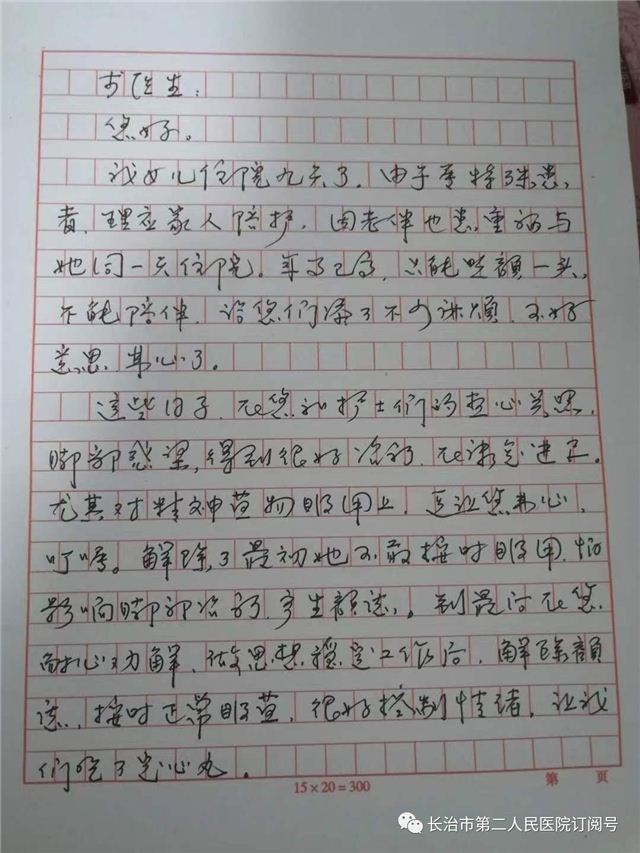 医生:
您好。
我女儿住院九天了,由于是特殊患
者,理应家人陪护,因老伴也患重病与
她同一天住院。年高已高,只能照顾一头,
不能陪伴,给您们添了不少麻烦,不好
意思,费心了。
这些日子,在您和护士们的热心关照,
脚部感染,得到很好治疗,在渐急进展。
尤其对精神药物服用上,更让您费心,
叮咛。解除了最初她不敢按时服用,怕
影响脚部治疗,产生顾虑,。到最后在您
耐心功解,做思想稳定工作后,解除顾
虑,按时正常服药,很好控制情绪,让我
们吃了定心丸。
15×20=300
第 页
长治市第二人民医院订阅号